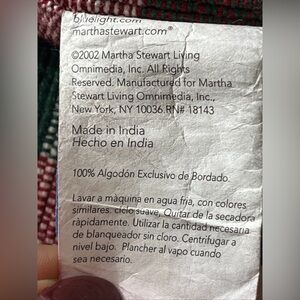 bluelight.com
marthastewart.com®
©2002 Martha Stewart Living
Omnimedia, Inc. All Rights
Reserved. Manufactured for Martha
Stewart Living Omnimedia, Inc.,
New York, NY 10036.RN# 18143
Made in India
Hecho en India
100% Algodón Exclusivo de Bordado.
Lavar a máquina en agua fría, con colores
similares. ciclo suave, Quitar de la secadora
rápidamente. Utilizar la cantidad necesaria
de blanqueador sin cloro. Centrifugar a
nivel bajo. Plancher al vapo cuando
sea necesario.